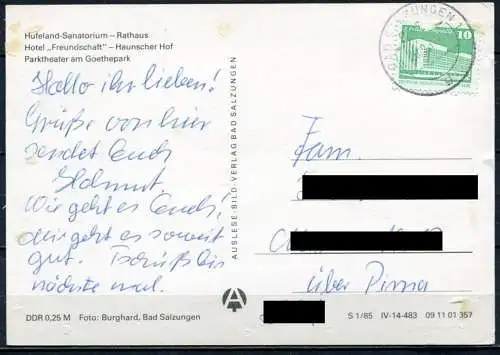 Hufeland-Sanatorium – Rathaus
Hotel „Freundschaft" – Haunscher Hof
Parktheater am Goethepark
Hallo ihr lieben!
Grüße von hier
sendet Euch
Helmut.
Wie geht es Euch?
mir geht es soweit
gut. Tschüß bis
nächste mal.
DDR 0,25 M Foto: Burghard, Bad Salzungen
AUSLESE-BILD-VERLAG BAD SALZUNGEN
BAD SALZUNGEN 1
10
Fam.
über Pirna
S 1/85 IV-14-483 09 11 01 357